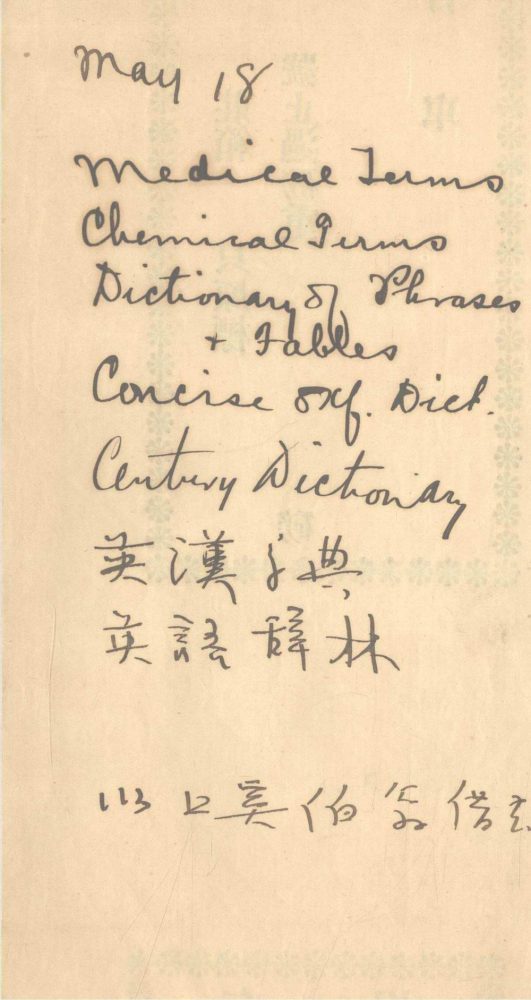 May 18
Medical Terms
Chemical Terms
Dictionary of Phrases
+ Fables
Concise Oxf. Dict.
Century Dictionary
英漢字典
英語辞林
以上吳伯翁借去